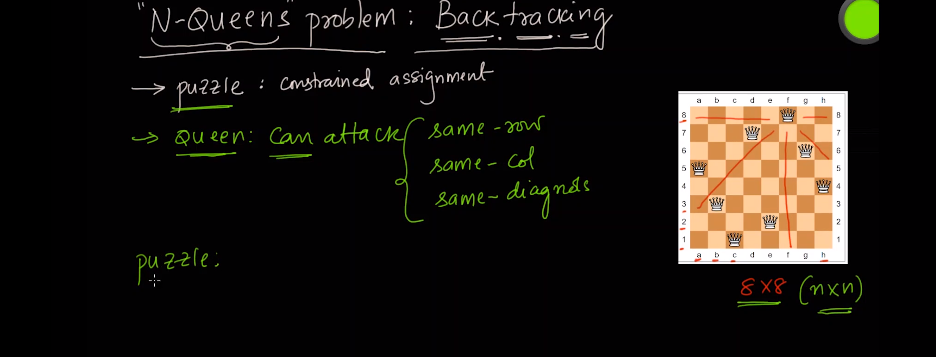 "N-Queens" problem : Backtracking
→ puzzle : constrained assignment
→ Queen: Can attack { same-row
same-col
same-diagnols
puzzle:
a b c d e f g h
8 8
7 7
6 6
5 5
4 4
3 3
2 2
1 1
a b c d e f g h
8x8 (nxn)